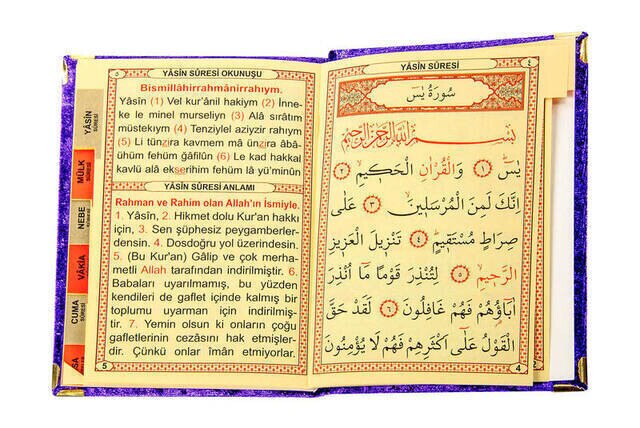 ٥
YÂSİN SÛRESİ OKUNUŞU
Bismillâhirrahmânirrahıym.
Yâsîn (1) Vel kur'ânil hakiym (2) İnne-
ke le minel murseliyn (3) Alâ sırâtım
müstekıym (4) Tenziylel aziyzir rahıym
(5) Li tünzira kavmem mâ ünzira âbâ-
ühüm fehüm gâfilûn (6) Le kad hakkal
kavlü alâ ekserihim fehüm lâ yü'minûn
YÂSİN SÛRESİ ANLAMI
Rahman ve Rahim olan Allah'ın İsmiyle.
1. Yâsin, 2. Hikmet dolu Kur'an hakkı
için, 3. Sen şüphesiz peygamberler-
densin. 4. Dosdoğru yol üzerindesin.
5. (Bu Kur'an) Gâlip ve çok merha-
metli Allah tarafından indirilmiştir. 6.
Babaları uyarılmamış, bu yüzden
kendileri de gaflet içinde kalmış bir
toplumu uyarman için indirilmiş-
tir. 7. Yemin olsun ki onların çoğu
gafletlerinin cezasını hak etmişler-
dir. Çünkü onlar îmân etmiyorlar.
5
YÂSİN
SÛRESİ
MÜLK
SÛRESİ
NEBE
SÛRESİ
VÂKIA
SÛRESİ
CUMA
SÛRESİ
YÂSİN SÛRESİ
٤
سُورَةُ يٰسٓ
بِسْمِ اللّٰهِ الرَّحْمٰنِ الرَّحٖيمِ
يٰسٓ ﴿١﴾ وَالْقُرْاٰنِ الْحَكٖيمِ ﴿٢﴾
اِنَّكَ لَمِنَ الْمُرْسَلٖينَ ﴿٣﴾ عَلٰى
صِرَاطٍ مُسْتَقٖيمٍ ﴿٤﴾ تَنْزٖيلَ الْعَزٖيزِ
الرَّحٖيمِ ﴿٥﴾ لِتُنْذِرَ قَوْمًا مَٓا اُنْذِرَ
اٰبَٓاؤُ۬هُمْ فَهُمْ غَافِلُونَ ﴿٦﴾ لَقَدْ حَقَّ
الْقَوْلُ عَلٰٓى اَكْثَرِهِمْ فَهُمْ لَا يُؤْمِنُونَ
4
2